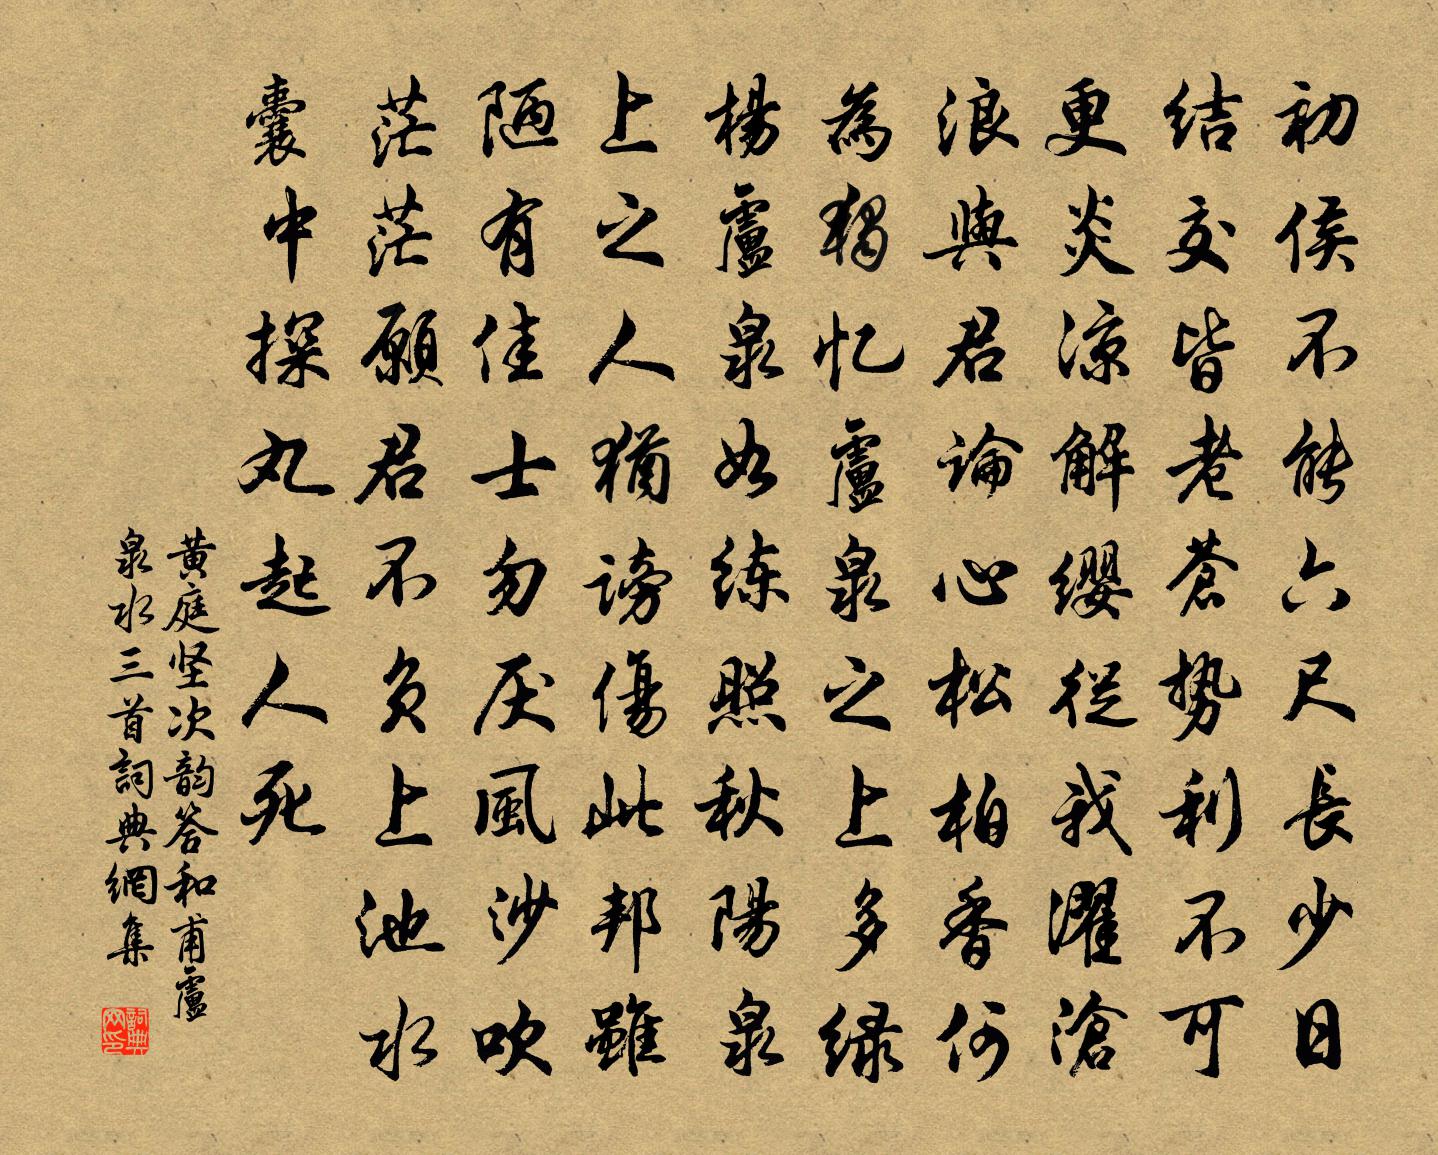 初侯不能六尺長少日
结交皆老苍势利不可
更炎凉解缨從我濯滄
浪與君論心松柏香何
為獨忆盧泉之上多绿
楊盧泉如练照秋陽泉
上之人猶謗傷此邦雖
陋有佳士勿厌風沙吹
茫茫願君不负上池水
囊中探丸起人死
黄庭坚次韵答和甫盧
泉水三首詞典網集
詞典网印